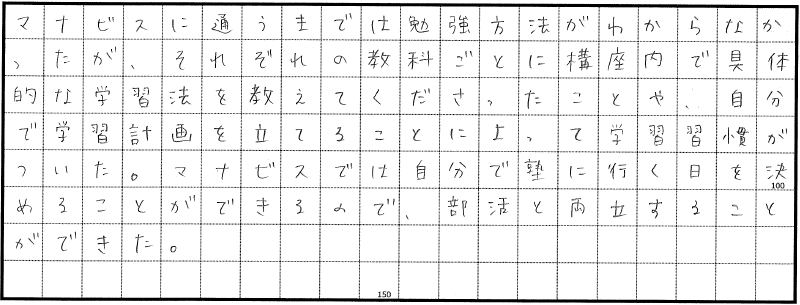 マナビスに通うまでは勉強方法がわからなか
ったが、それぞれの教科ごとに構座内で具体
的な学習法を教えてくださったことや、自分
で学習計画を立てることによって学習習慣が
ついた。マナビスでは自分で塾に行く日を決
100
めることができるので、部活と両立すること
ができた。
150